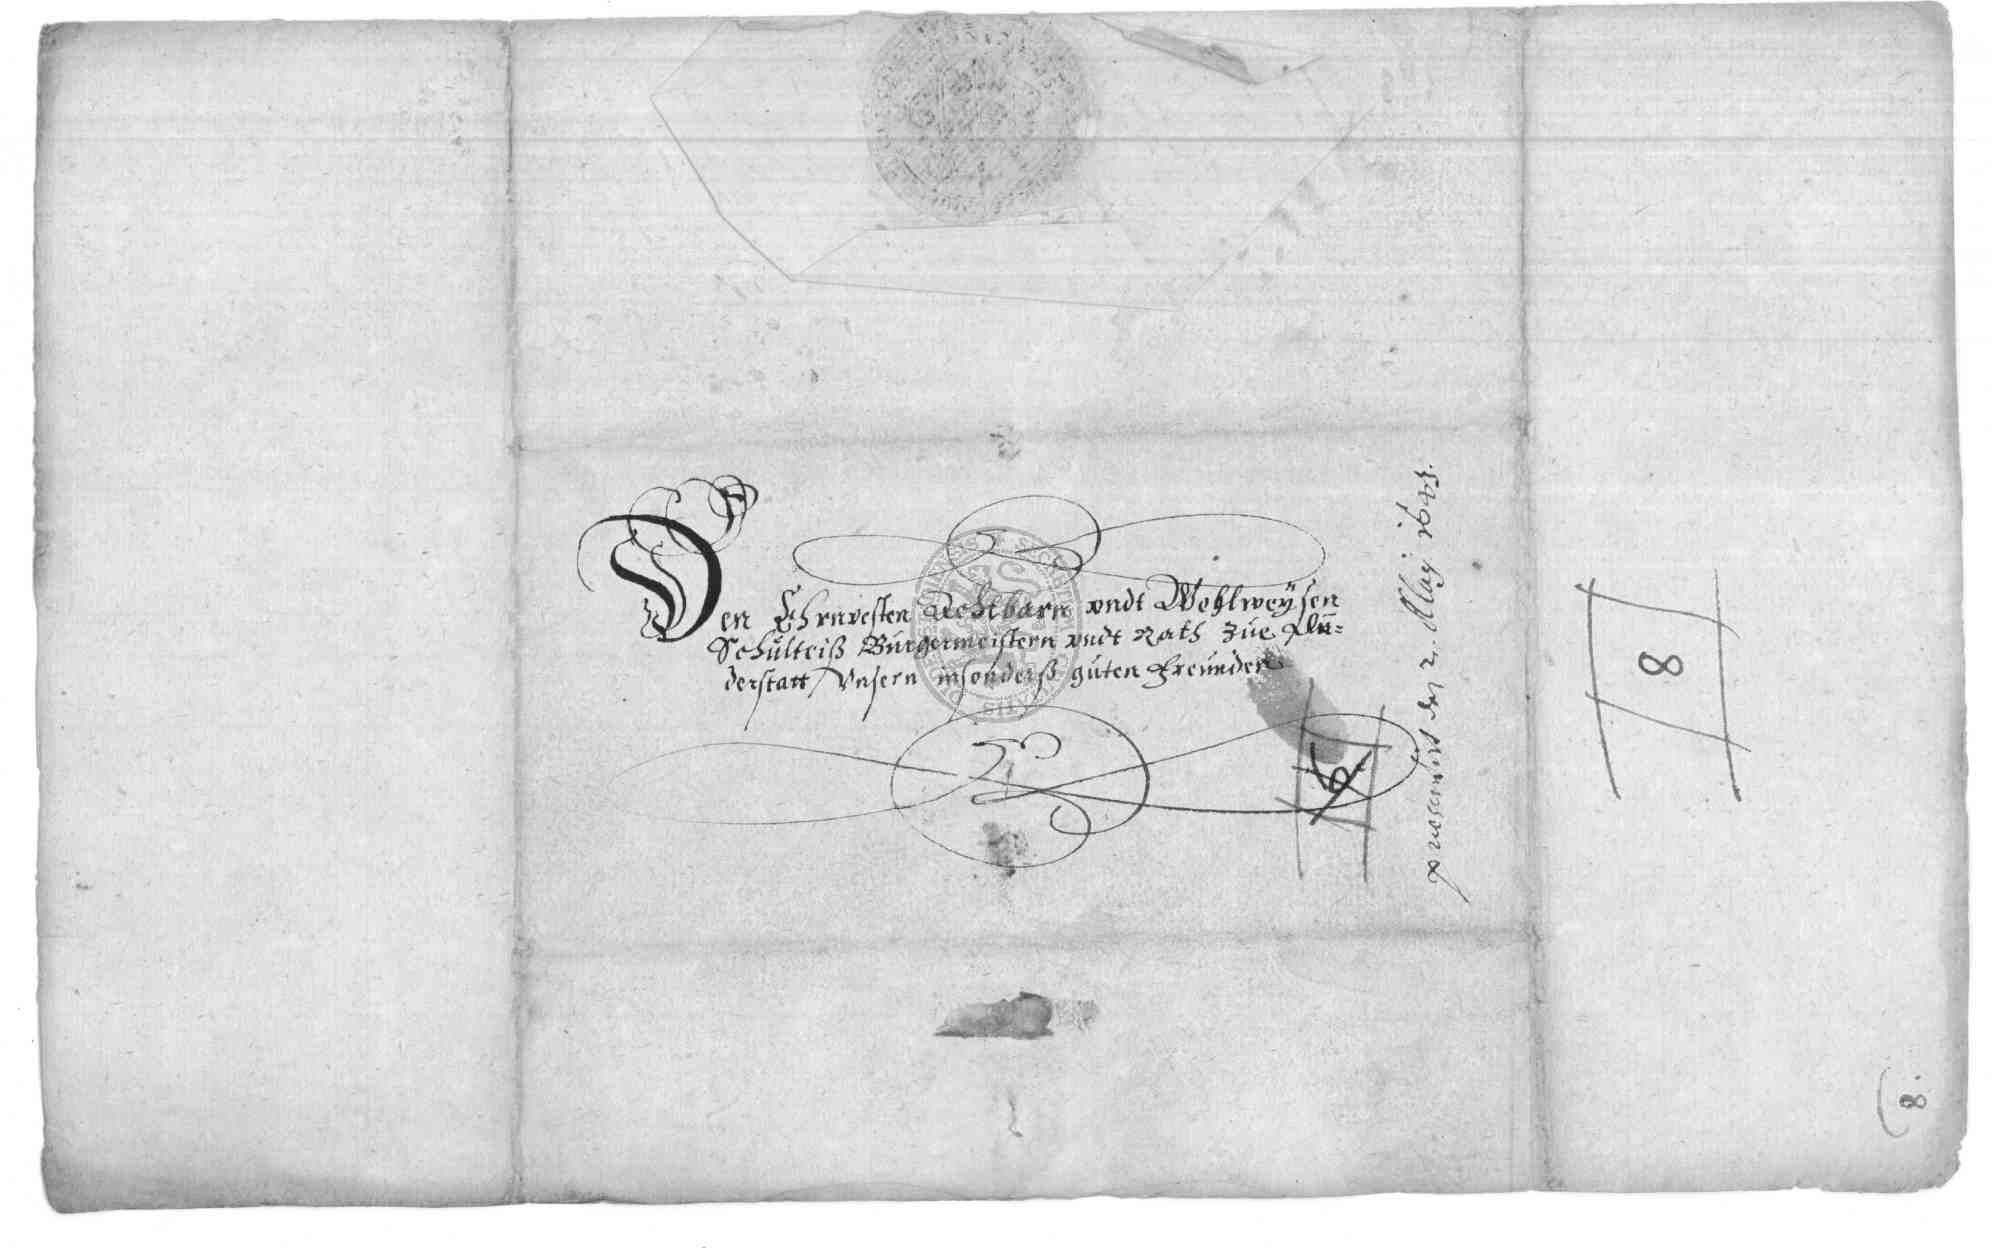 Den Ehrnvesten Achtbarn vndt Wohlweÿsen
Schulteiß Bürgermeistern vndt Rath züe Flü=
derstatt, Vnsern insonderß güten Freünden
praesentirt den 2. Maÿ 1645.
8
8.